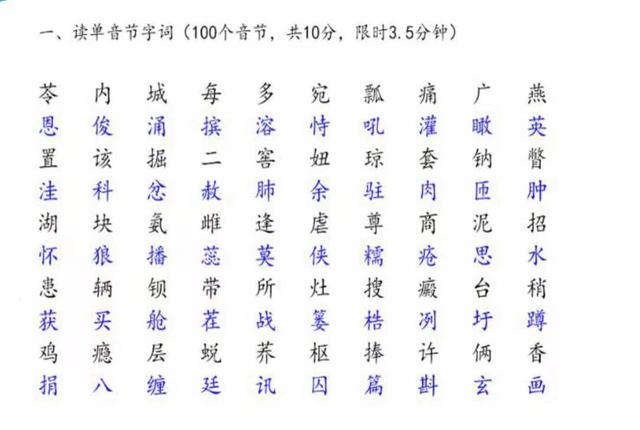 一、读单音节字词（100个音节，共10分，限时3.5分钟）
苓 内 城 每 多 宛 瓢 痛 广 燕
恩 俊 涌 摈 溶 恃 吼 灌 瞰 英
置 该 掘 二 窖 妞 琼 套 钠 瞥
洼 科 忿 赦 肺 余 驻 肉 匝 肿
湖 块 氨 雌 逢 虐 尊 商 泥 招
怀 狼 播 蕊 莫 侠 糯 疮 思 水
患 辆 钡 带 所 灶 搜 癜 台 稍
获 买 舱 茬 战 篓 梏 冽 圩 蹲
鸡 瘾 层 蜕 荞 枢 捧 许 俩 香
捐 八 缠 廷 讯 囚 篇 斟 玄 画